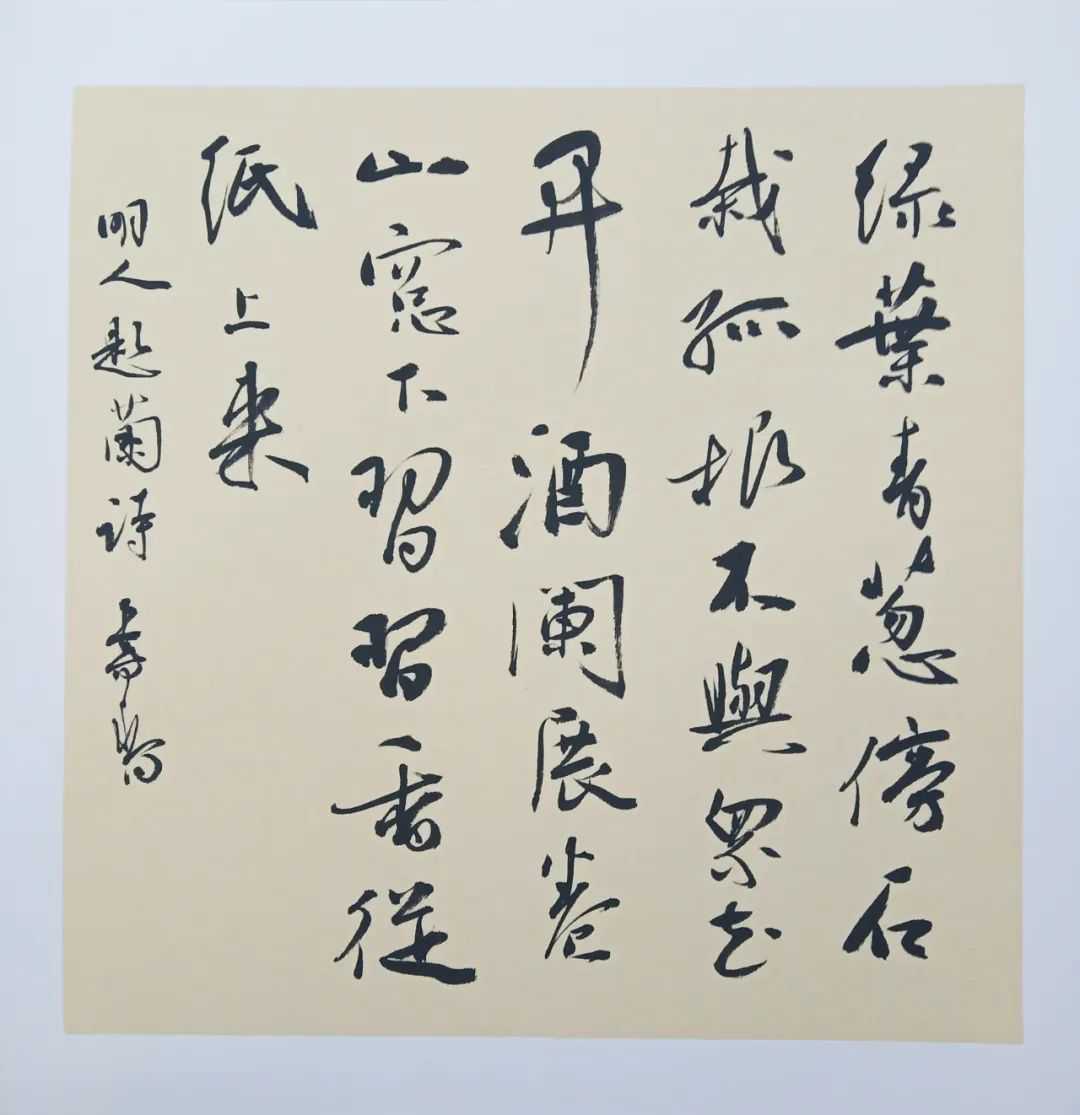 绿葉青葱傍石
栽孤根不與眾花
開酒闌展卷
山窓下習習香從
紙上來
明人題蘭詩